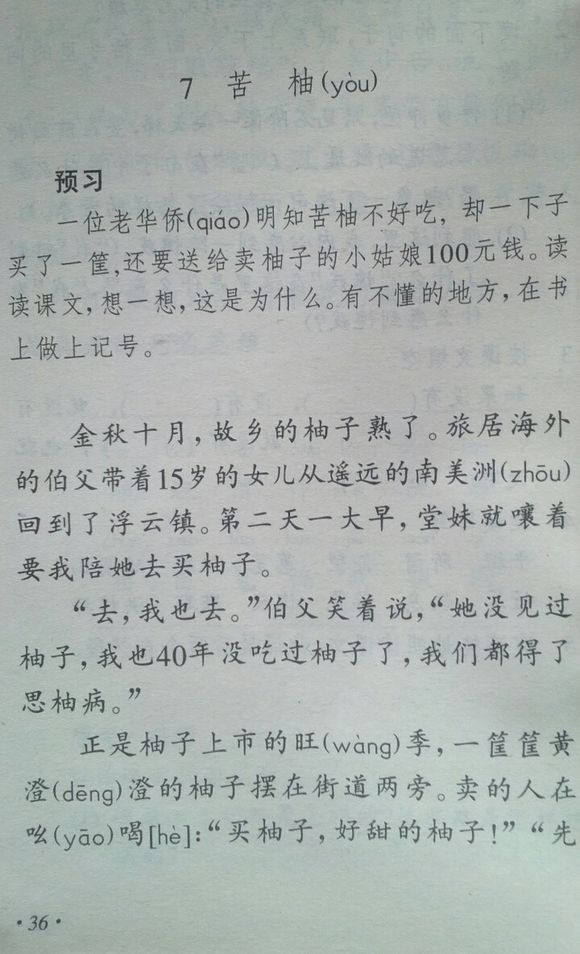 7 苦 柚(yòu)
预习
一位老华侨(qiáo)明知苦柚不好吃，却一下子
买了一筐,还要送给卖柚子的小姑娘100元钱。读
读课文，想一想，这是为什么。有不懂的地方，在书
上做上记号。
金秋十月，故乡的柚子熟了。旅居海外
的伯父带着15岁的女儿从遥远的南美洲(zhōu)
回到了浮云镇。第二天一大早，堂妹就嚷着
要我陪她去买柚子。
“去，我也去。”伯父笑着说，“她没见过
柚子，我也40年没吃过柚子了，我们都得了
思柚病。”
正是柚子上市的旺(wàng)季，一筐筐黄
澄(dēng)澄的柚子摆在街道两旁。卖的人在
吆(yāo)喝[hè]：“买柚子，好甜的柚子！”“先
·36·